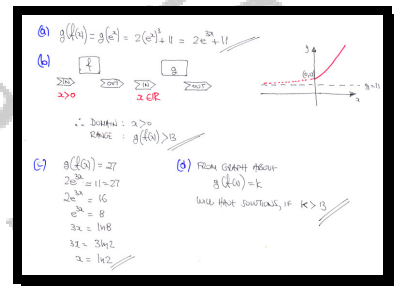 (a) g(f(x)) = g(e^x) = 2(e^x)^3 + 11 = 2e^{3x} + 11
(b) f g
IN OUT IN OUT
x>0 x∈ℝ
y
(0,13)
y=11
x
∴ DOMAIN: x>0
RANGE: g(f(x))>13
(c) g(f(x)) = 27
2e^{3x} + 11 = 27
2e^{3x} = 16
e^{3x} = 8
3x = ln8
3x = 3ln2
x = ln2
(d) FROM GRAPH ABOVE
g(f(x)) = k
WILL HAVE SOLUTIONS, IF k > 13